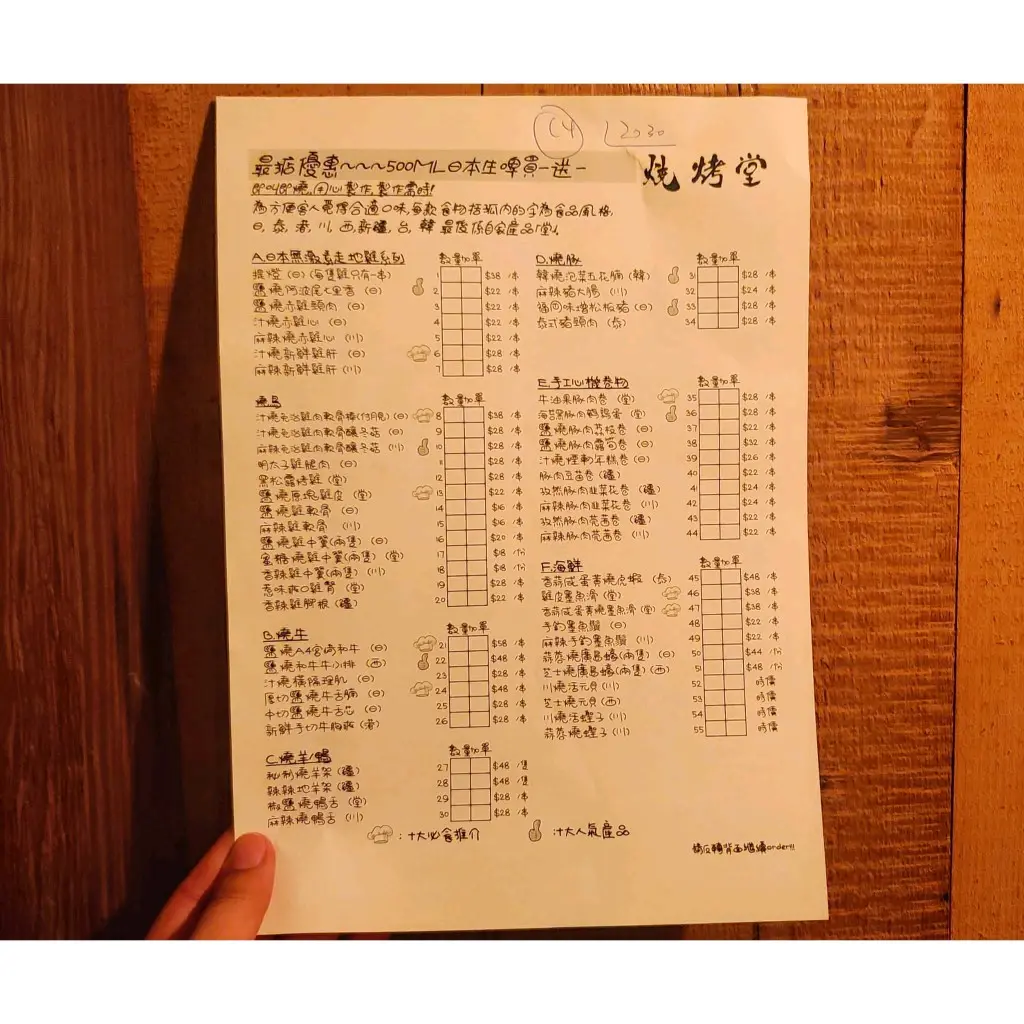 C4 2030
最掂優惠~~~500ML日本生啤買一送一
燒烤堂
即叫即燒,用心製作,製作需時!
為方便客人覓得合適口味,每款食物括弧內的字為食品風格,
日, 泰, 港, 川, 西, 新疆, 台, 韓 最後係自家產品「堂」.
A.日本無激素走地雞系列 數量加單
提燈 (日) (每隻雞只有一串) 1 $38 /串
鹽燒阿波尾七里香 (日) 2 $22 /串
鹽燒赤雞頸肉 (日) 3 $22 /串
汁燒赤雞心 (日) 4 $22 /串
麻辣燒赤雞心 (川) 5 $22 /串
汁燒新鮮雞肝 (日) 6 $28 /串
麻辣新鮮雞肝 (川) 7 $28 /串
燒鳥 數量加單
汁燒免治雞肉軟骨棒(付月見) (日) 8 $38 /串
汁燒免治雞肉軟骨釀冬菇 (日) 9 $28 /串
麻辣免治雞肉軟骨釀冬菇 (川) 10 $28 /串
明太子雞腿肉 (日) 11 $28 /串
黑松露烤雞 (堂) 12 $28 /串
鹽燒原塊雞皮 (堂) 13 $22 /串
鹽燒雞軟骨 (日) 14 $16 /串
麻辣雞軟骨 (川) 15 $16 /串
鹽燒雞中翼(兩隻) (日) 16 $20 /串
蜜糖燒雞中翼(兩隻) (堂) 17 $18 /份
香辣雞中翼(兩隻) (川) 18 $18 /份
惹味爽口雞腎 (堂) 19 $28 /串
香辣雞腎根 (疆) 20 $22 /串
B.燒牛 數量加單
鹽燒A4宮崎和牛 (日) 21 $58 /串
鹽燒和牛牛小排 (西) 22 $48 /串
汁燒橫隔理肌 (日) 23 $28 /串
厚切鹽燒牛舌腩 (日) 24 $48 /串
中切鹽燒牛舌芯 (日) 25 $28 /串
新鮮手切牛胸爽 (港) 26 $28 /串
C.燒羊/鴨 數量加單
秘制燒羊架 (疆) 27 $48 /隻
辣辣地羊架 (疆) 28 $48 /隻
椒鹽燒鴨舌 (堂) 29 $28 /串
麻辣燒鴨舌 (川) 30 $28 /串
:十大必食推介 :十大人氣產品
D.燒豚 數量加單
韓燒泡菜五花腩 (韓) 31 $28 /串
麻辣豬大腸 (川) 32 $24 /串
福岡味增松板豬 (日) 33 $28 /串
泰式豬頸肉 (泰) 34 $28 /串
E.手工心機卷物 數量加單
牛油果豚肉卷 (堂) 35 $28 /串
海苔黑豚肉鵪鶉蛋 (堂) 36 $28 /串
鹽燒豚肉荔枝卷 (日) 37 $22 /串
鹽燒豚肉露筍卷 (日) 38 $32 /串
汁燒煙鴨年糕卷 (日) 39 $26 /串
豚肉豆苗卷 (疆) 40 $22 /串
孜然豚肉韭菜花卷 (疆) 41 $24 /串
麻辣豚肉韭菜花卷 (川) 42 $24 /串
孜然豚肉芫茜卷 (疆) 43 $22 /串
麻辣豚肉芫茜卷 (川) 44 $22 /串
F.海鮮 數量加單
香蒜咸蛋黃燒虎蝦 (泰) 45 $48 /串
雞皮墨魚滑 (日) 46 $38 /串
香蒜咸蛋黃燒墨魚滑 (堂) 47 $38 /串
手釣墨魚鬚 (日) 48 $22 /串
麻辣手釣墨魚鬚 (川) 49 $22 /串
蒜蓉燒廣島蠔(兩隻) (日) 50 $44 /份
芝士燒廣島蠔(兩隻) (西) 51 $48 /份
川燒活元貝 (川) 52 時價
芝士燒元貝 (西) 53 時價
川燒活蟶子 (川) 54 時價
蒜蓉燒蟶子 (川) 55 時價
請反轉背面繼續order!!!